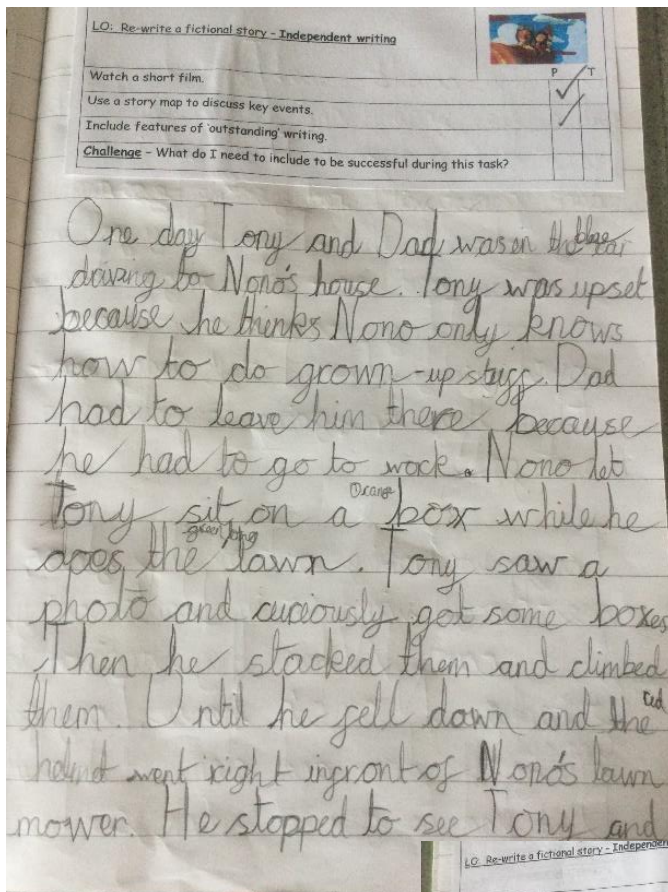 LO: Re-write a fictional story - Independent writing
P T
Watch a short film.
Use a story map to discuss key events.
Include features of 'outstanding' writing.
Challenge - What do I need to include to be successful during this task?
One day Tony and Dad was on the blue car
driving to Nono's house. Tony was upset
because he thinks Nono only knows
how to do grown-up stuff. Dad
had to leave him there because
he had to go to work. Nono let
Tony sit on a Orange box while he
does the green long lawn. Tony saw a
photo and curiously got some boxes
Then he stacked them and climbed
them. Until he fell down and the red
helmet went right infront of Nono's lawn
mower. He stopped to see Tony and
LO: Re-write a fictional story - Independen